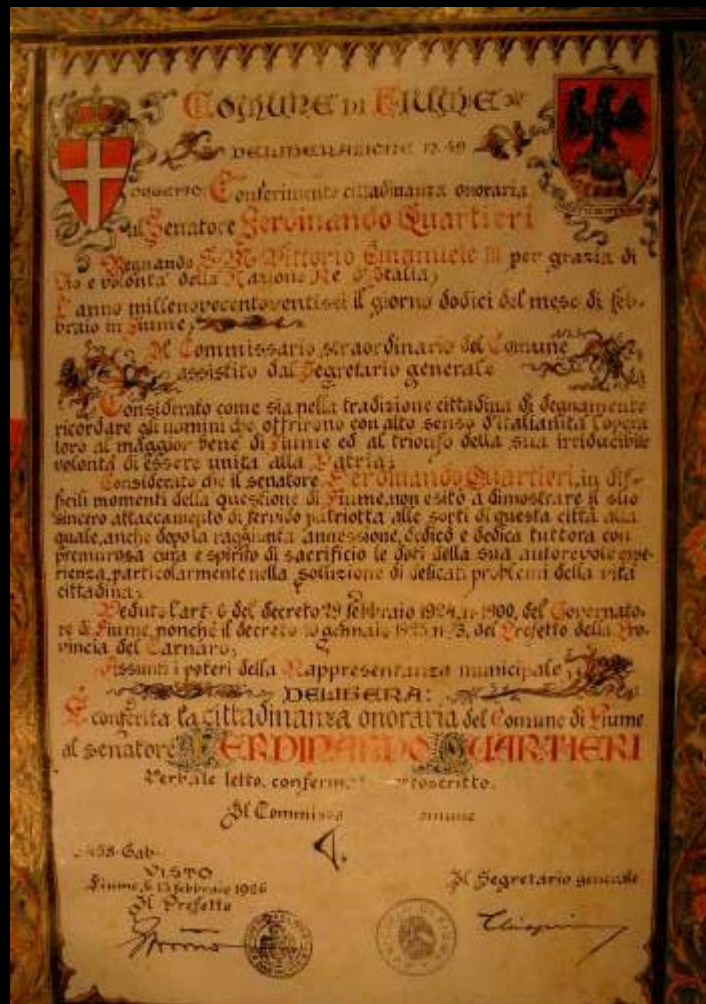 COMUNE DI FIUME
DELIBERAZIONE N. 49
OGGETTO: Conferimento cittadinanza onoraria
al Senatore Ferdinando Quartieri
Regnando S. M. Vittorio Emanuele III per grazia di
Dio e volontà della Nazione Re d'Italia;
L'anno millenovecentoventisei il giorno dodici del mese di feb-
braio in Fiume;
Il Commissario straordinario del Comune
assistito dal Segretario generale
Considerato come sia nella tradizione cittadina di degnamente
ricordare gli uomini che offrirono con alto senso d'italianità l'opera
loro al maggior bene di Fiume ed al trionfo della sua irriducibile
volontà di essere unita alla Patria;
Considerato che il senatore Ferdinando Quartieri, in dif-
ficili momenti della questione di Fiume, non esitò a dimostrare il suo
sincero attaccamento di fervido patriotta alle sorti di questa città alla
quale, anche dopo la raggiunta annessione, dedicò e dedica tuttora con
premurosa cura e spirito di sacrificio le doti della sua autorevole espe-
rienza, particolarmente nella soluzione di delicati problemi della vita
cittadina;
Veduto l'art. 6 del decreto 29 febbraio 1924, n. 1900, del Governato-
re di Fiume, nonché il decreto gennaio del Prefetto della Pro-
vincia del Carnaro;
Assunti i poteri della Rappresentanza municipale;
DELIBERA:
È conferita la cittadinanza onoraria del Comune di Fiume
al senatore FERDINANDO QUARTIERI
Verbale letto, conferm toscritto.
Il Commiss omune
458-Gab-
VISTO
Fiume, li 15 febbraio 1926
Il Prefetto
Il Segretario generale